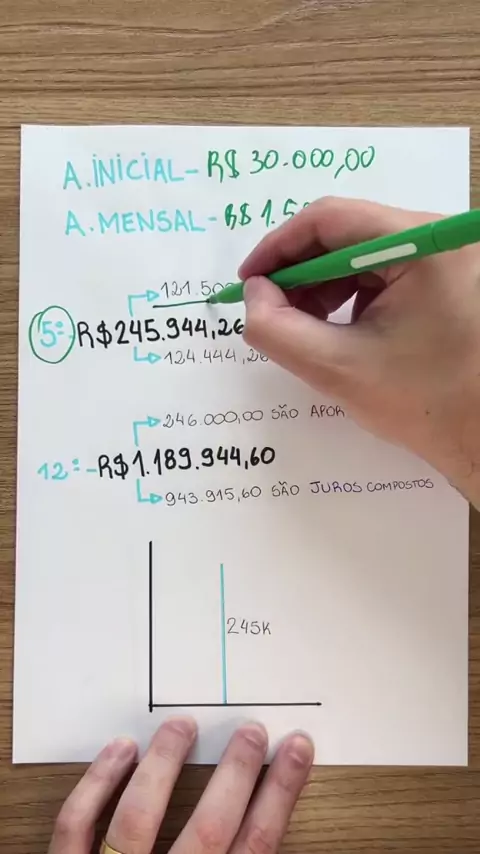 A. INICIAL - R$ 30.000,00
A. MENSAL - R$ 1.5
121.50
5º - R$245.944,26
124.444,26
246.000,00 SÃO APOR
12º - R$1.189.944,60
943.915,60 SÃO JUROS COMPOSTOS
245K